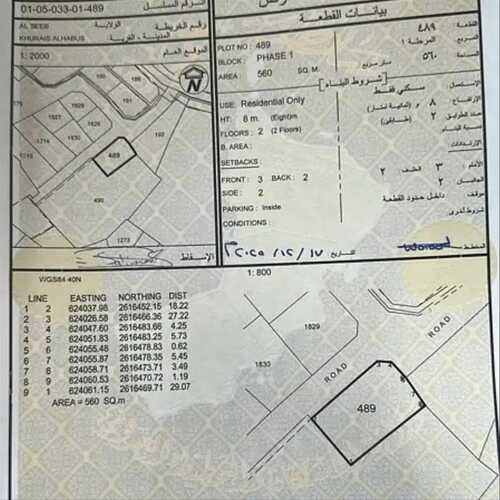 01-05-033-01-489
الرقم المسلسل
AL SEEB
الولاية
رقم الخريطة
KHURAIS ALHABUS
المدينة - القرية
1: 2000
الموقع العام
N
1629
1628
1831
1716
1715
1830
1829
489
490
1273
الإسقاط
بيانات القطعة
PLOT NO : 489
القطعة ٤٨٩
BLOCK : PHASE 1
المرحلة ١
AREA : 560 SQ. M.
متر مربع ٥٦٠ المساحة
شروط البناء
USE: Residential Only
الاستعمال سكني فقط
HT: 8 m. (Eight)m
الارتفاع ٨ م (ثمانية امتار)
FLOORS : 2 (2 Floors)
عدد الطوابق ٢ (طابقين)
B. AREA :
نسبة البناء
SETBACKS :
الارتدادات
FRONT : 3 BACK : 2
الأمام ٣ الخلف ٢
SIDE : 2
الجانبين ٢
PARKING : Inside
داخل حدود القطعة
CONDITIONS :
شروط أخرى
التاريخ
المخطط
WGS84 40N
1: 800
LINE EASTING NORTHING DIST
1 2 624037.98 2616452.15 18.22
2 3 624026.58 2616466.36 27.22
3 4 624047.60 2616483.66 4.25
4 5 624051.83 2616483.25 5.73
5 6 624055.48 2616478.83 0.62
6 7 624055.87 2616478.35 5.45
7 8 624058.71 2616473.71 3.49
8 9 624060.53 2616470.72 1.19
9 1 624061.15 2616469.71 29.07
AREA = 560 SQ.m
1829
1830
ROAD
ROAD
489